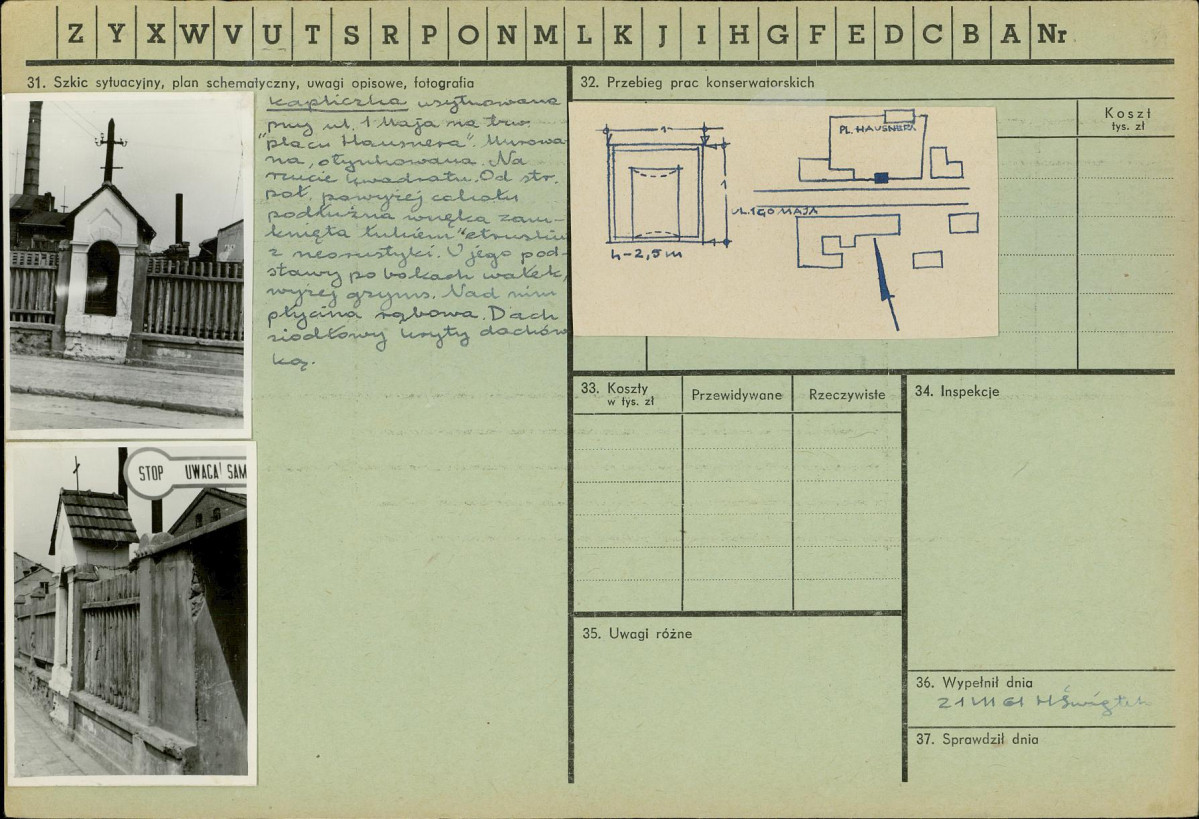 Z Y X W V U T S R P O N M L K J I H G F E D C B A Nr
31. Szkic sytuacyjny, plan schematyczny, uwagi opisowe, fotografia
kapliczka usytuowana
przy ul. 1 Maja na tzw.
"placu Hausnera". Murowa-
na, otynkowana. Na
rzucie kwadratu. Od str.
poł. powyżej cokołu
podłużna wnęka zam-
knięta łukiem
z neorustyki. U jego pod-
stawy po bokach wałek,
wyżej gzyms. Nad nim
płycina rąbowa. Dach
siodłowy kryty dachów-
ką.
STOP UWAGA! SAM
32. Przebieg prac konserwatorskich
Koszt
tys. zł
1
1
h-2,5m
PL. HAUSNERA
UL. 1GO MAJA
33. Koszty
w tys. zł
Przewidywane
Rzeczywiste
34. Inspekcje
35. Uwagi różne
36. Wypełnił dnia
21 VII 61 HŚwiątek
37. Sprawdził dnia